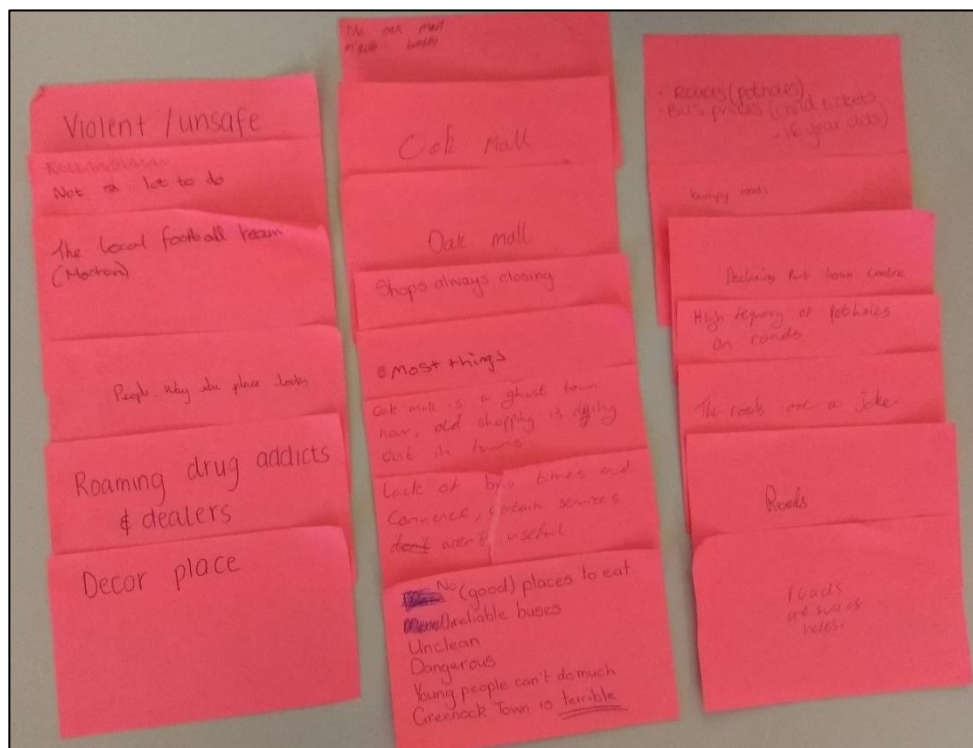 Violent / unsafe
Not a lot to do
The local football team
(Morton)
People. Way the place looks
Roaming drug addicts
& dealers
Decor place
The oak mall
Oak Mall
Oak mall
Shops always closing
Most things
Oak mall is a ghost town
now, old shopping is dying
out in towns
Lack of bus times and
Convience, certain services
aren't useful
No (good) places to eat
Unreliable buses
Unclean
Dangerous
Young people can't do much
Greenock Town is terrible
- Roads (potholes)
- Bus prices (child tickets
- 16 year olds)
bumpy roads
Declining town centre
High fequency of potholes
on roads
The roads are a joke
Roads
roads
are full of
holes.